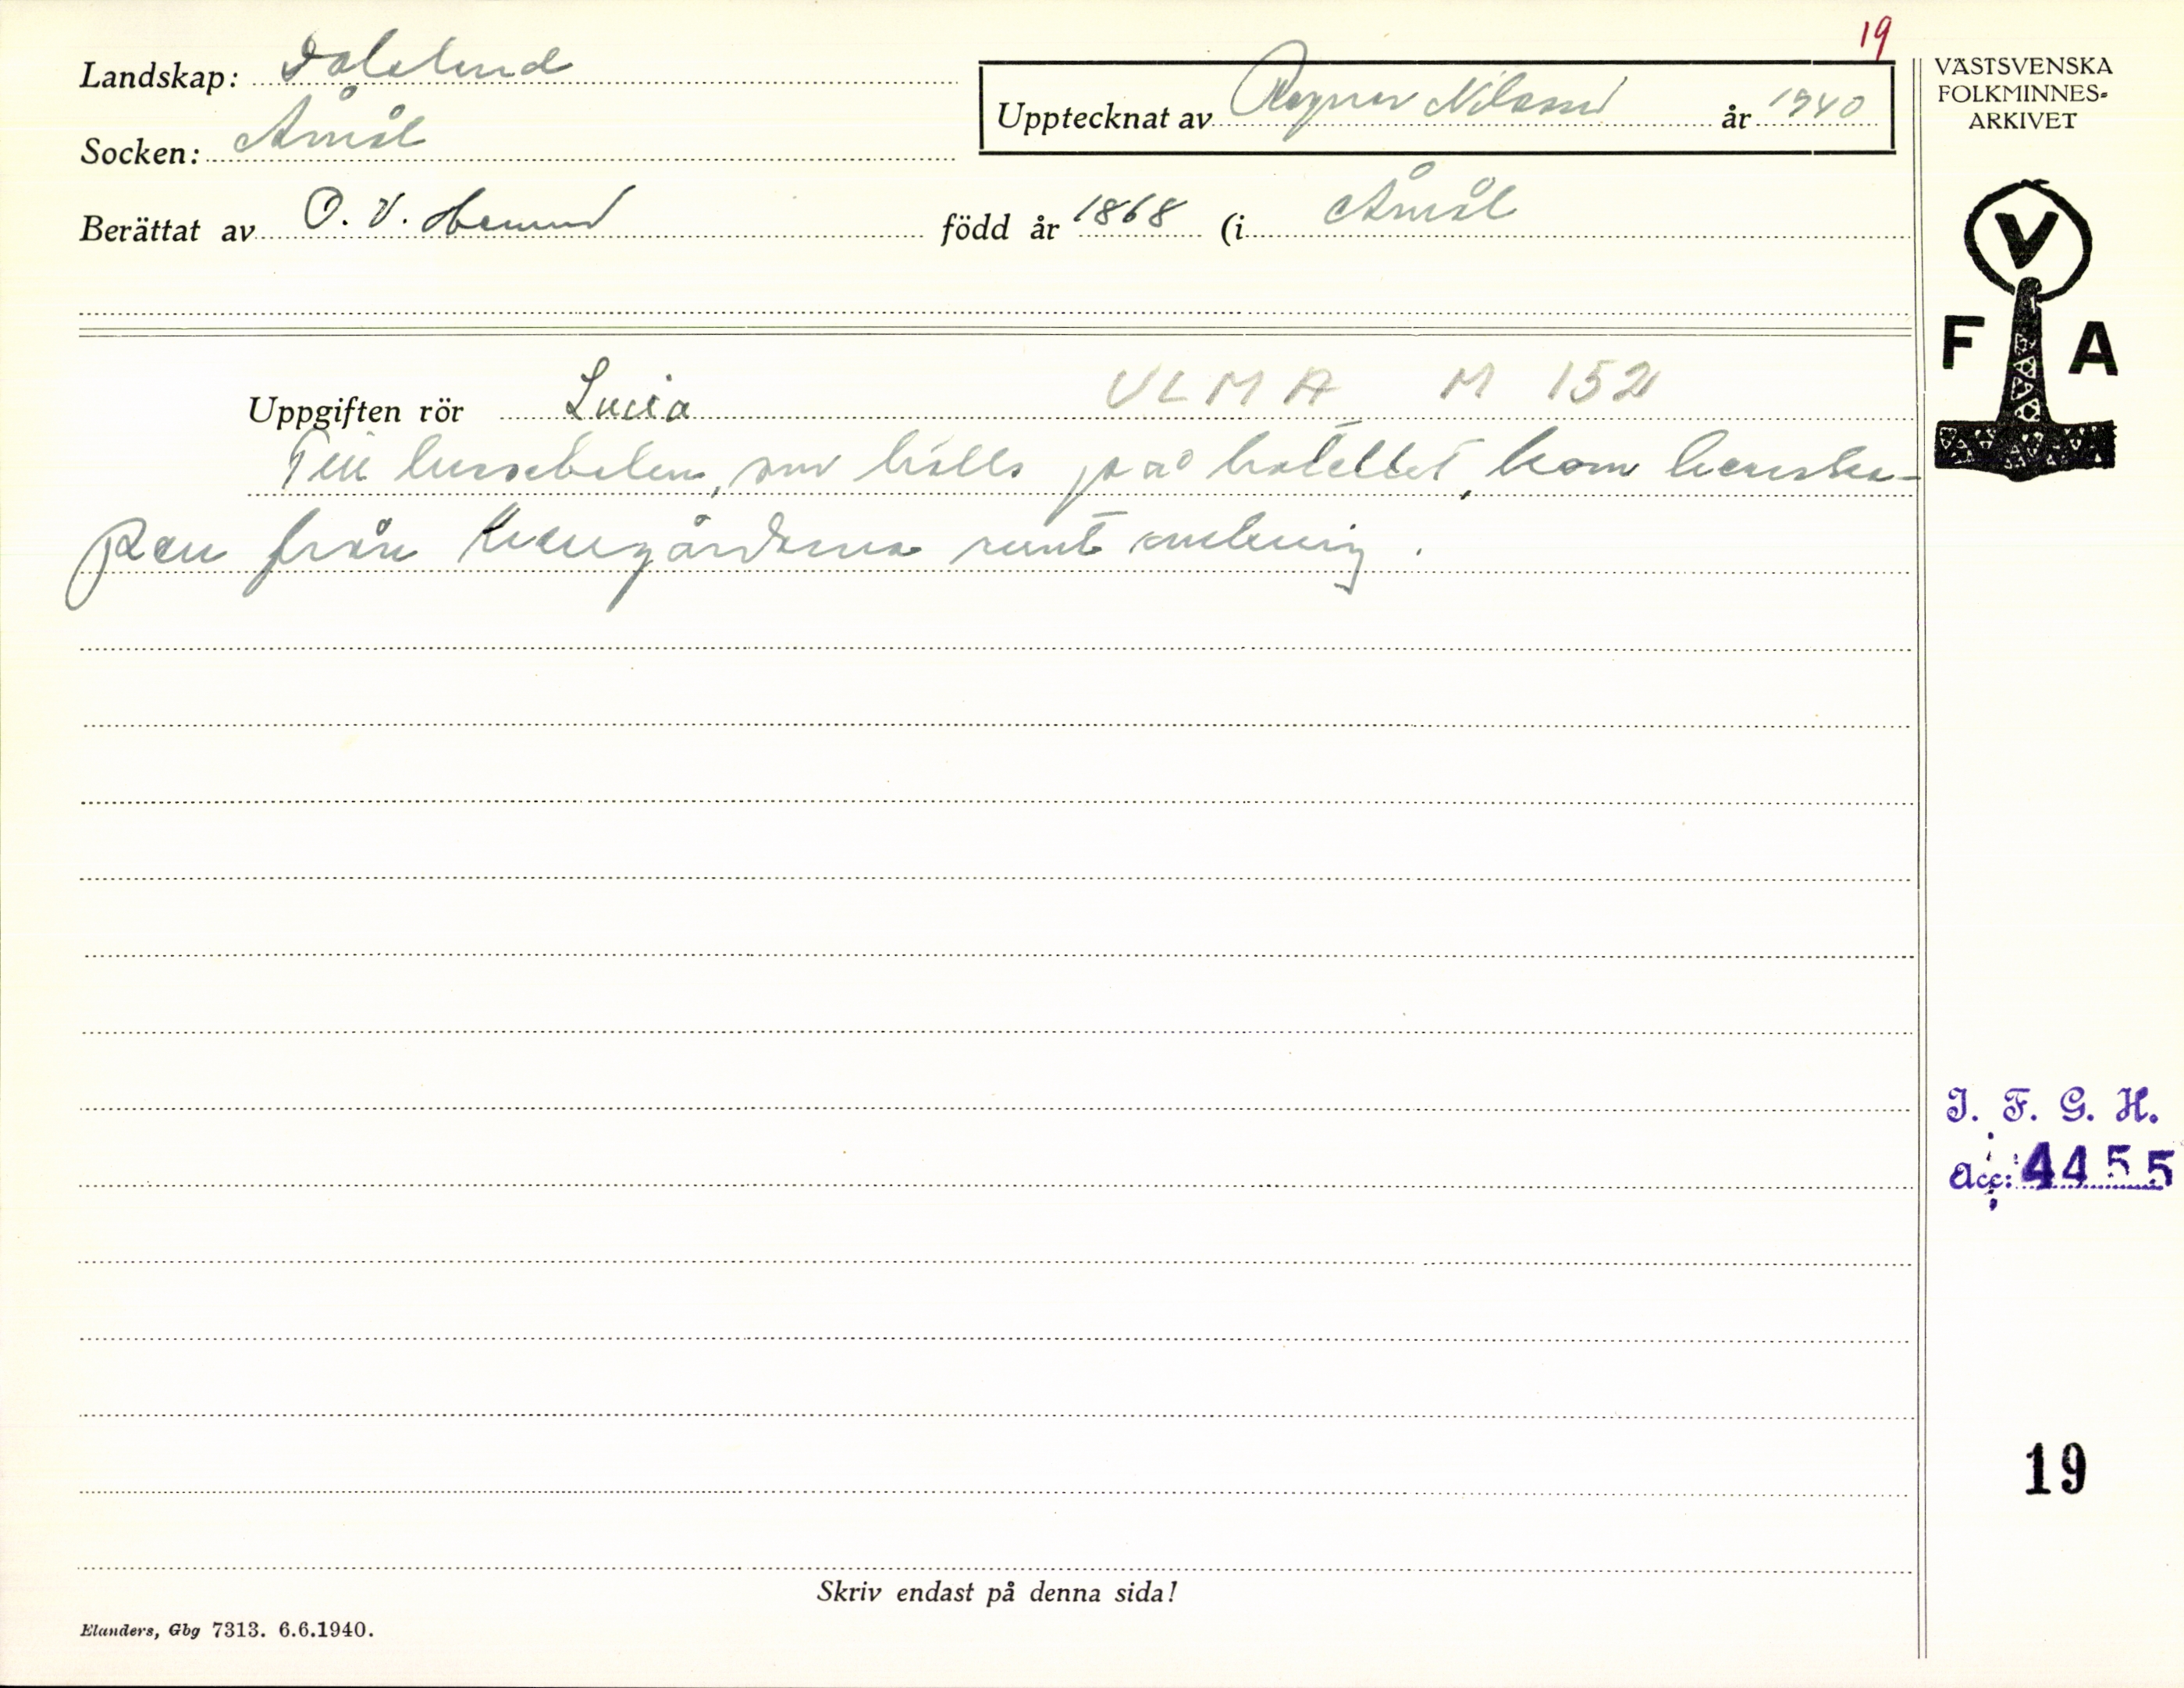 19
Landskap: Dalsland
Socken: Åmål
Upptecknat av Ragnar Nilsson år 1940
Berättat av O. V. född år 1868 (i Åmål
VÄSTSVENSKA
FOLKMINNES-
ARKIVET
V
F A
Uppgiften rör Lucia VLMA M 152
Till lussebalen, som hölls på hotellet, kom herrska-
pen från herrgårdarna runt omkring.
I. F. G. H.
Acc: 4455
19
Skriv endast på denna sida!
Elanders, Gbg 7313. 6.6.1940.